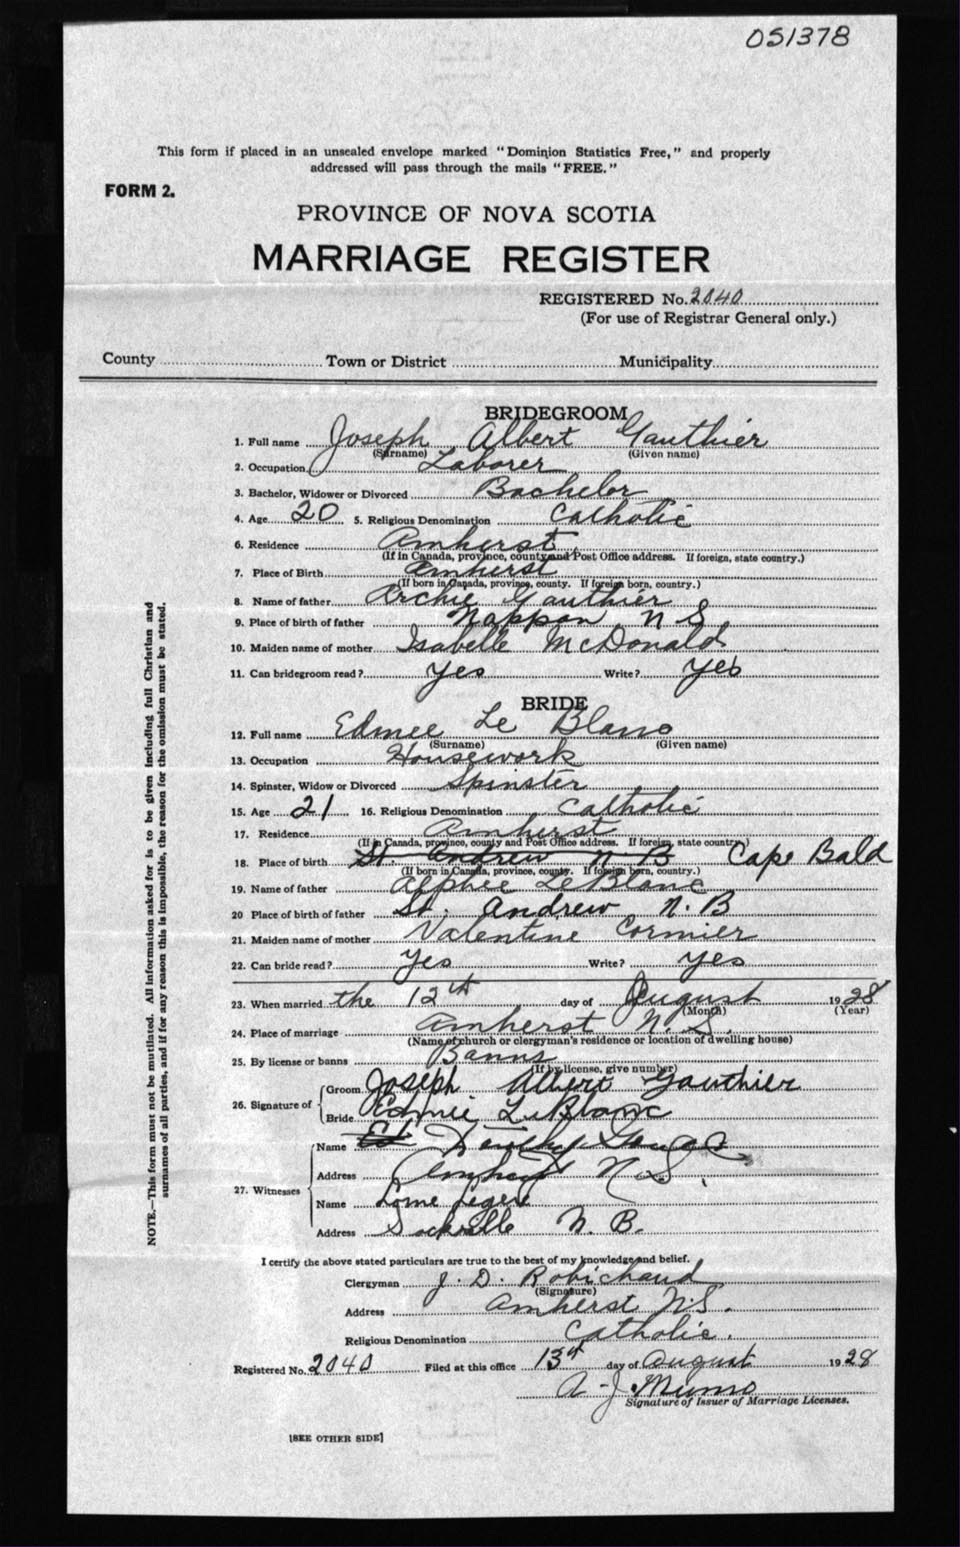 051378
This form if placed in an unsealed envelope marked "Dominion Statistics Free," and properly
addressed will pass through the mails "FREE."
FORM 2.
PROVINCE OF NOVA SCOTIA
MARRIAGE REGISTER
REGISTERED No. 2040
(For use of Registrar General only.)
County Town or District Municipality
BRIDEGROOM
1. Full name Joseph Albert Gauthier
(Surname) (Given name)
2. Occupation Laborer
3. Bachelor, Widower or Divorced Bachelor
4. Age 20 5. Religious Denomination Catholic
6. Residence Amherst
(If in Canada, province, county and Post Office address. If foreign, state country.)
7. Place of Birth Amherst
(If born in Canada, province, county. If foreign born, country.)
8. Name of father Archie Gauthier
9. Place of birth of father Nappan N S
10. Maiden name of mother Isabelle McDonald
11. Can bridegroom read? Yes Write? Yes
BRIDE
12. Full name Edmee Le Blanc
(Surname) (Given name)
13. Occupation Housework
14. Spinster, Widow or Divorced Spinster
15. Age 21 16. Religious Denomination Catholic
17. Residence Amherst
(If in Canada, province, county and Post Office address. If foreign, state country)
18. Place of birth St. Andrew N B Cape Bald
(If born in Canada, province, county. If foreign born, country.)
19. Name of father Alphee LeBlanc
20 Place of birth of father St. Andrew N. B
21. Maiden name of mother Valentine Cormier
22. Can bride read? Yes Write? Yes
23. When married the 12th day of August 1928
(Month) (Year)
24. Place of marriage Amherst N. S.
(Name of church or clergyman's residence or location of dwelling house)
25. By license or banns Banns
(If by license, give number)
26. Signature of Groom Joseph Albert Gauthier
Bride Edmie LeBlanc
27. Witnesses
Name Ed
Address Amherst N. S.
Name Lorne Legere
Address Sackville N. B.
I certify the above stated particulars are true to the best of my knowledge and belief.
Clergyman J. D. Robichaud
(Signature)
Address Amherst N.S.
Religious Denomination Catholic.
Registered No. 2040 Filed at this office 13th day of August 1928
A. J. Munro
Signature of Issuer of Marriage Licenses.
[SEE OTHER SIDE]
NOTE.—This form must not be mutilated. All information asked for is to be given including full Christian and
surnames of all parties, and if for any reason this is impossible, the reason for the omission must be stated.